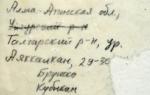 Алма-Атинская обл,
Уйгурский р-н
Талгарский р-н, ур.
Аяккалкан, 29-30
Брушко
Кубикан